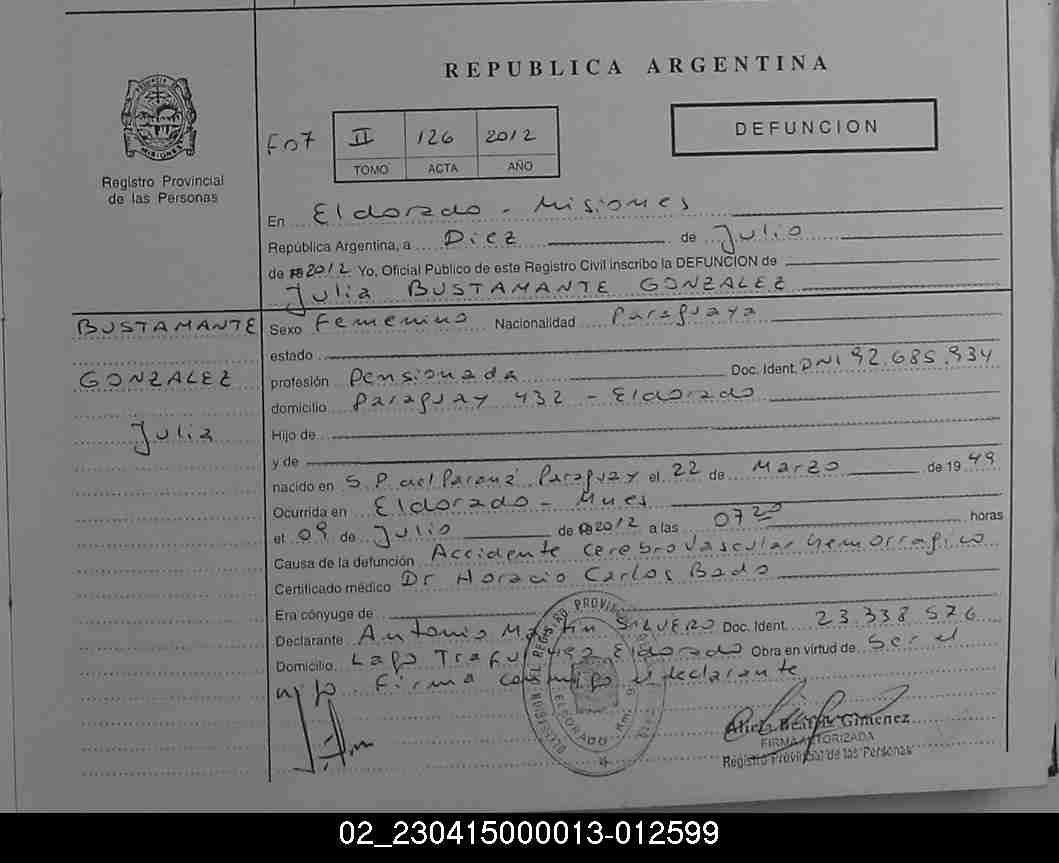 REPUBLICA ARGENTINA
PROVINCIA
MISIONES
Registro Provincial
de las Personas
Fo7 II 126 2012
TOMO ACTA AÑO
DEFUNCION
En Eldorado - Misiones
República Argentina, a Diez de Julio
de 2012 Yo, Oficial Público de este Registro Civil inscribo la DEFUNCION de
Julia BUSTAMANTE GONZALEZ
BUSTAMANTE
GONZALEZ
Julia
Sexo Femenino Nacionalidad Paraguaya
estado
profesión Pensionada Doc. Ident. DNI 92.685.934
domicilio Paraguay 432 - Eldorado
Hijo de
y de
nacido en S. P. del Paraná Paraguay el 22 de Marzo de 1949
Ocurrida en Eldorado - Mnes
el 09 de Julio de 2012 a las 07 20 horas
Causa de la defunción Accidente Cerebro Vascular hemorragico
Certificado médico Dr Horacio Carlos Bado
Era cónyuge de
Declarante Antonio Martin SILVERO Doc. Ident. 23.338.576
Domicilio Lago Traful Eldorado Obra en virtud de Ser el
Firma conmigo el declarante
Alicia Beatriz Gimenez
FIRMA AUTORIZADA
Registro Provincial de las Personas
02_230415000013-012599